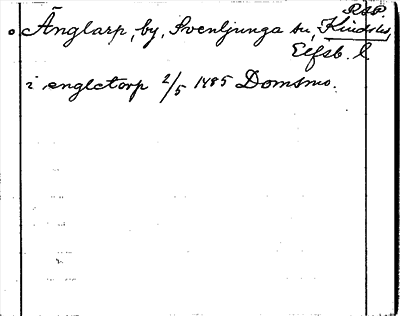 RAP.
Änglarp, by, Svenljunga sn, Kinds hd,
Elfsb. l.
i engletorp 2/5 1485 Domsmo.